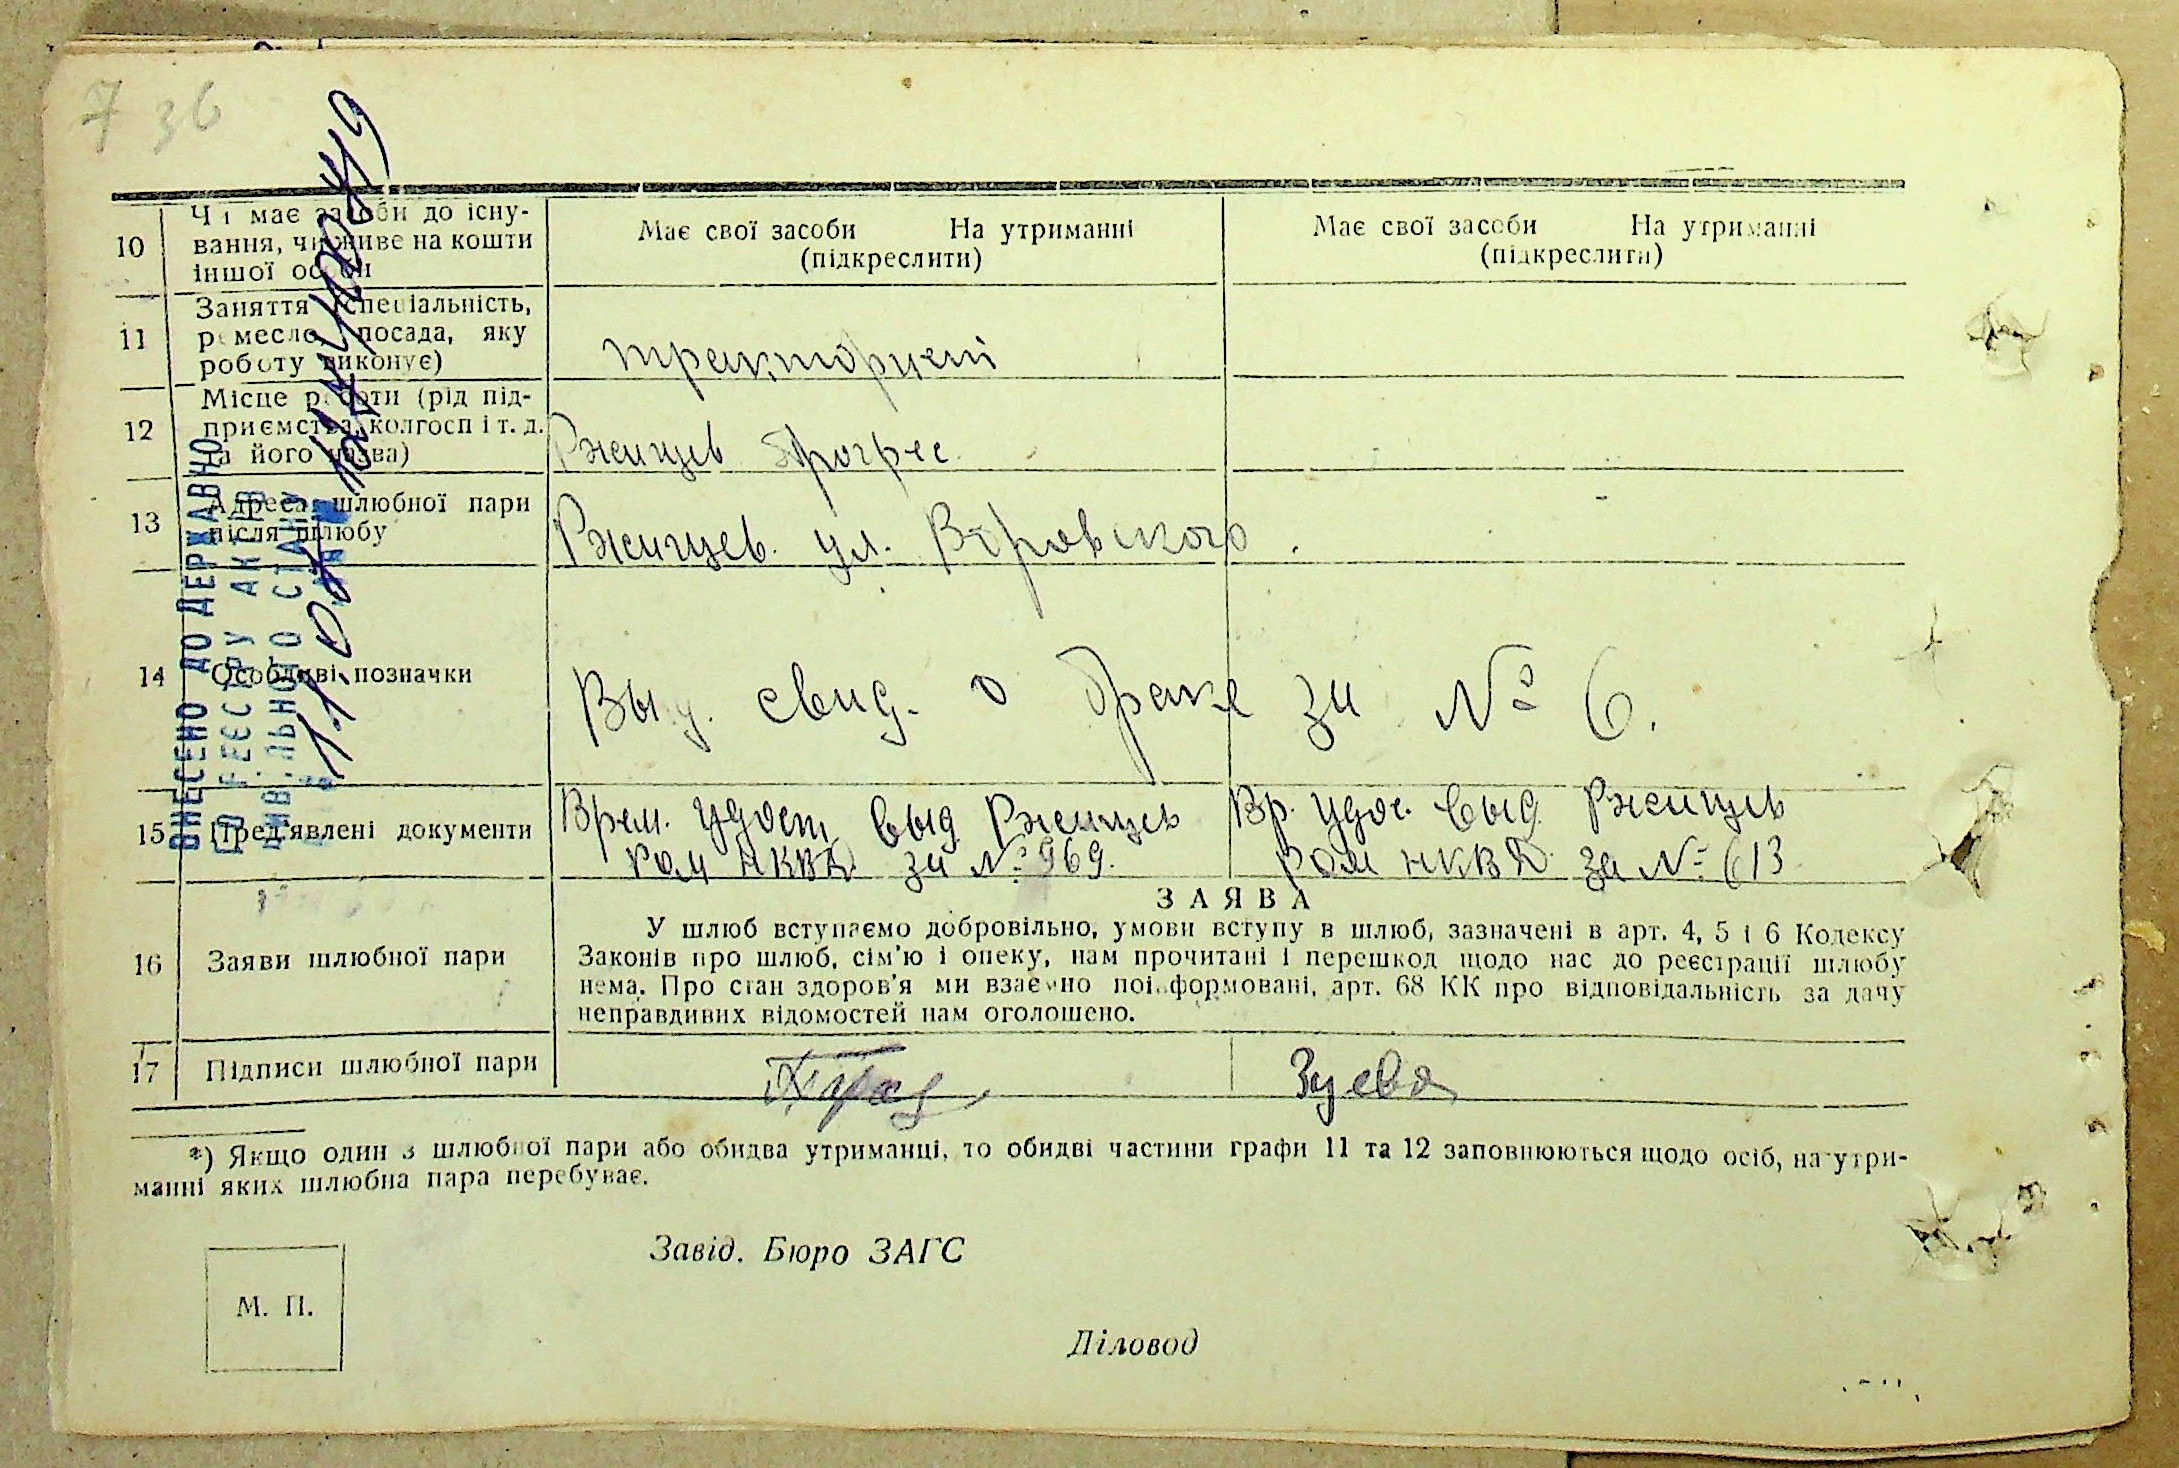 7 36
10 Чи має засоби до існу-
вання, чи живе на кошти
іншої особи
Має свої засоби На утриманні
(підкреслити)
Має свої засоби На утриманні
(підкреслити)
11 Заняття (спеціальність,
ремесло, посада, яку
роботу виконує)
12 Місце роботи (рід під-
приємства, колгосп і т. д.
та його назва)
Ржищев Прогрес
13 Адреса шлюбної пари
після шлюбу
Ржищев. ул. Воровского.
14 Особливі позначки
Выд. свид. о браке за № 6.
15 Пред'явлені документи
Врем. удост выд Ржищев
ром НКВД за № 969.
Вр. удос. выд Ржищев
ром НКВД за № 613
ВНЕСЕНО ДО ДЕРЖАВНО
ГО РЕЄСТРУ АКТІВ
ЦИВІЛЬНОГО СТАНУ
16 Заяви шлюбної пари
ЗАЯВА
У шлюб вступаємо добровільно, умови вступу в шлюб, зазначені в арт. 4, 5 і 6 Кодексу
Законів про шлюб, сім'ю і опеку, нам прочитані і перешкод щодо нас до реєстрації шлюбу
нема. Про стан здоров'я ми взаємно поінформовані, арт. 68 КК про відповідальність за дачу
неправдивих відомостей нам оголошено.
17 Підписи шлюбної пари
Зуева
*) Якщо один з шлюбної пари або обидва утриманці, то обидві частини графи 11 та 12 заповнюються щодо осіб, на утри-
манні яких шлюбна пара перебуває.
Завід. Бюро ЗАГС
М. П.
Діловод